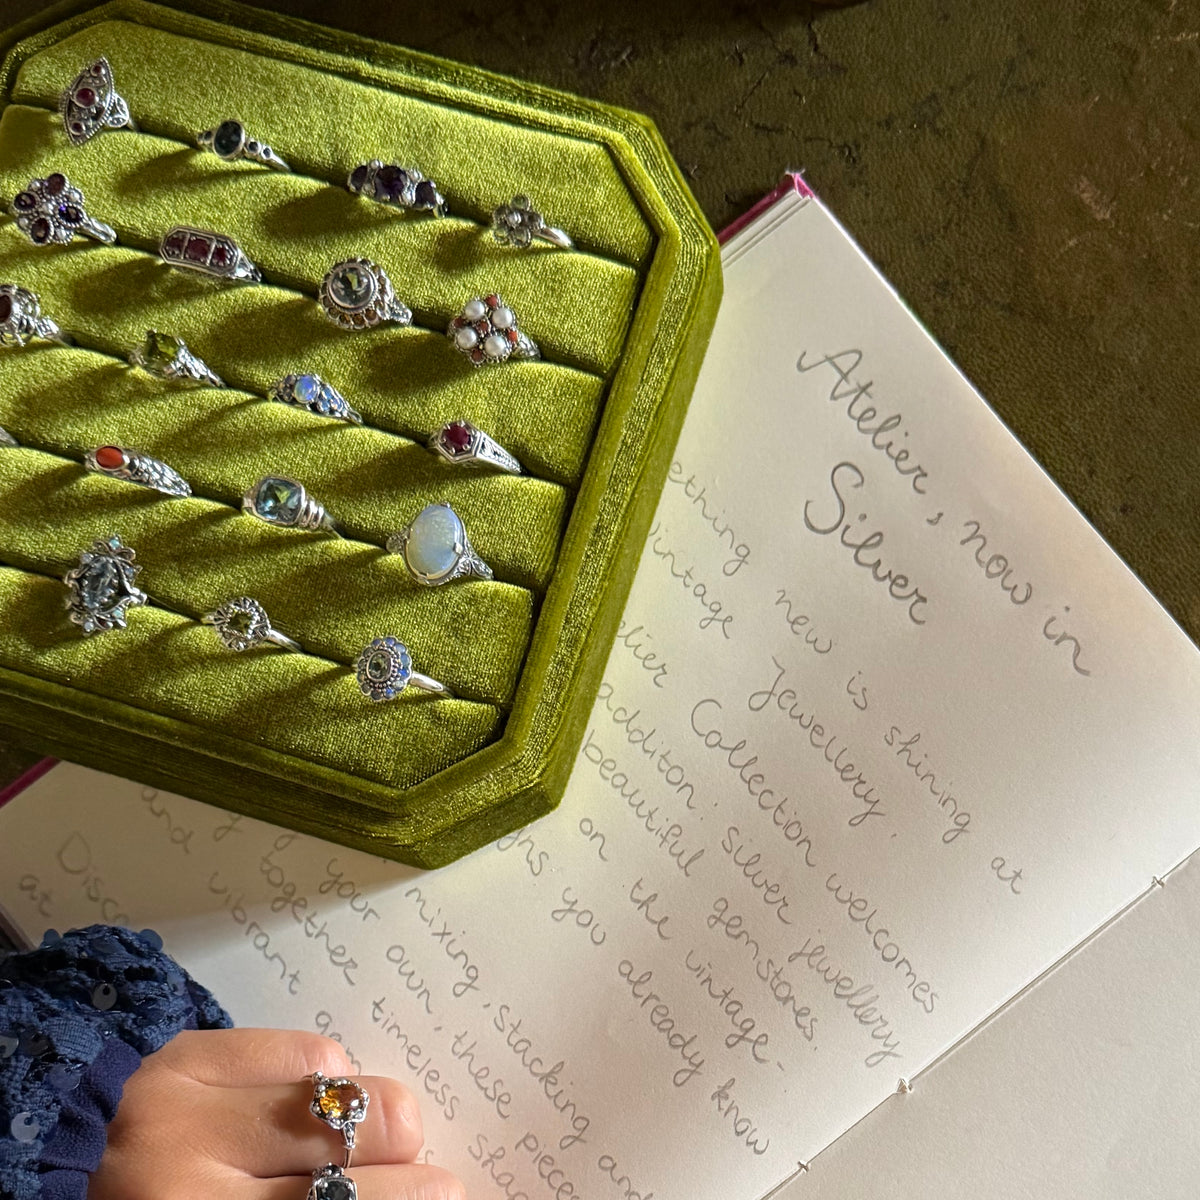 Atelier, now in
Silver
new is shining at
vintage Jewellery.
Collection welcomes
additon: silver jewellery
beautiful gemstones.
on the vintage-
you already know
mixing, stacking and
your own, these pieces
together timeless
and vibrant
at